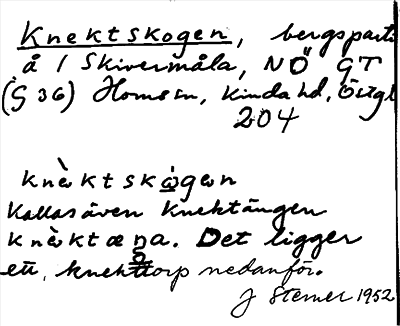 Knektskogen, bergsparti
å 1 Skivermåla, NÖ GT
(G 36) Horns sn, Kinda hd, Östgl
204
knὲktskώ̣gωn
Kallas även Knektängen
knὲktæṇa. Det ligger
ett, knekttorp nedanför.
J Sterner 1952